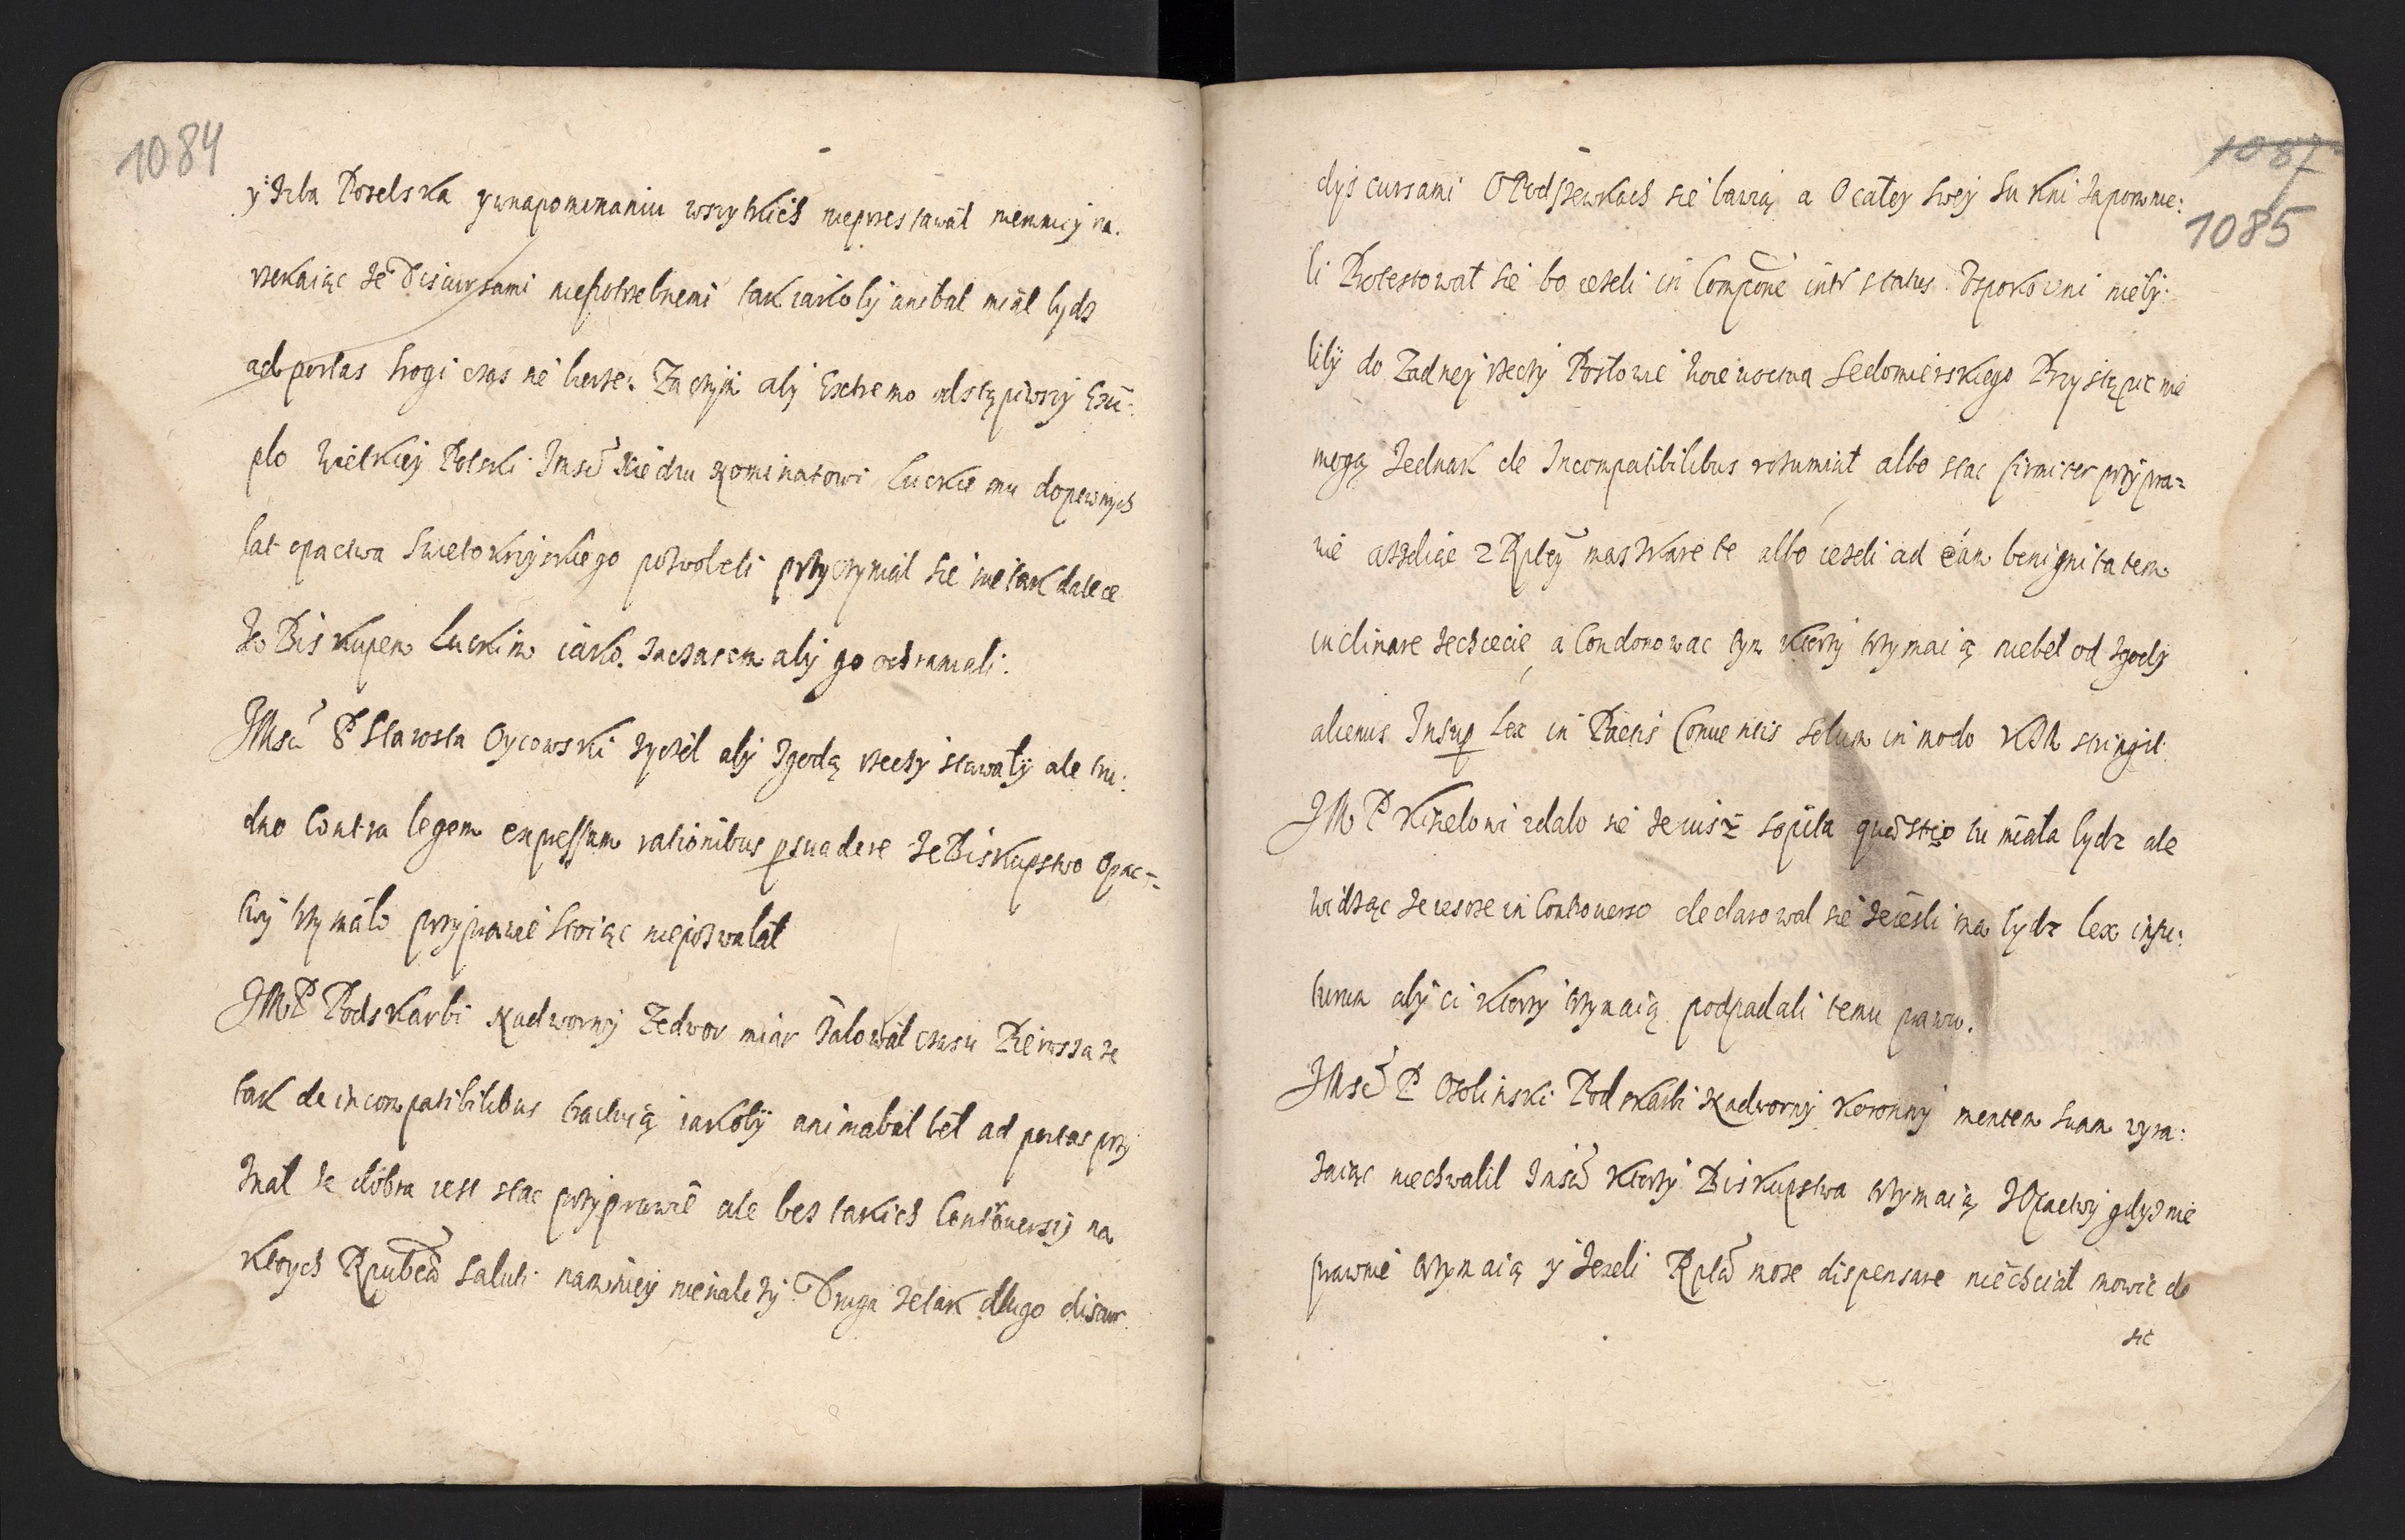 1084
y Izba Poselska y wnapominaniu wszytkich nieprzestawał niemniej na.
rzekaiąc że Discursami niepotrzebnemi tak iakoby anibal miał bydz
ad portas srogi czas nie bierze. Zaczym aby Extremo odstąpiwszy Exē:
plo Wielkiey Polski Jmsci Xiędzu Nominatowi Luckiemu dopewnych
lat opactwa Swietokrzyskiego pozwoleli przyczyniał sie nie tak dalece
Ze Biskupem Luckim iako. Zaczasem aby go ochraniali:
JMsci P Starosta Oycowski zyczel aby zgodą rzeczy stawały ale tru:
dno Contra legem expressum rationibus psuadere Ze Biskupstwo Opac=
twy trzymało przyprawie stoiąc niepozwalał
JM P Podskarbi Nadworny Zedwor miar żałował czasu Pierwsza ze
tak de incompatibilibus tractuią iakoby animabal beł ad portas przy
znał ze dobra iest stac przyprawie ale bez takich Controuersiy na
ktorych Rpubca saluti namniey nienależy Druga zetak dlugo discur
1087
1085
dyscursami O Podszewkach sie bawią a O całey swey sukni zapomnie:
li Protestował sie bo ieżeli in Compōne intr status Uspokoieni nieby:
liby do Zadney rzeczy Posłowie Woiewoctwa Sedomierskiego Przystąpic nie
mogą Jednak de Incompatibilibus rozumiał albo stac firmiter przypra=
wie a Rpltey albo ieżeli ad eam benignitatem
inclinare zechcecie, a Condonowac tym ktorzy trzymaią niebeł od zgody
alienus Insup Lex in Pactis Conuentis solum in modo KJM stringit.
JM P Kisielowi zdało sie ze iusz sopita quæstio tu miała bydz ale
widząc ze iescze in Controuerso declarował sie że iesli ma bydz lex infu:
turum aby ci ktorzy trzymaią podpadali temu prawu.
JMsci P Osolinski Podskarbi Nadworny Koronny mentem suam wyra:
żaiąc niechwalił Jmsci ktorzy Biskupstwa trzymaią z Opactwy gdyż nie
prawnie trzymaią y Jezeli Rplta może dispensare niechciał mowic do
sie